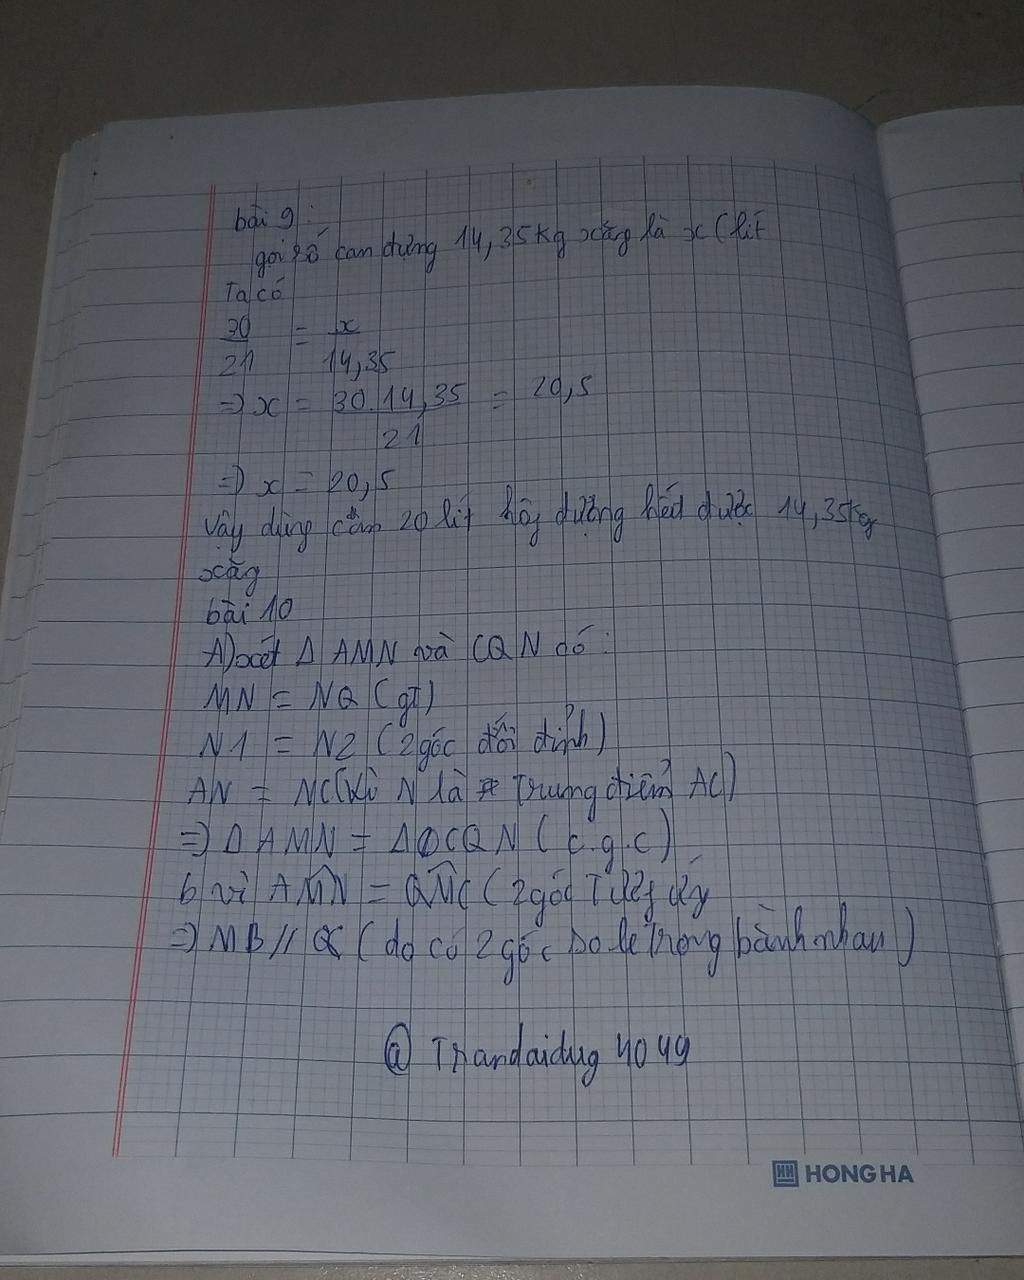 bài 9:
gọi số can đựng 14,35kg xăng là x (lít
Ta có
30/21 = x/14,35
=> x = 30.14,35/21 = 20,5
=> x = 20,5
Vậy dùng can 20 lít hông đường hết được 14,35kg
xăg
bài 10
A) xét Δ AMN và CQN có:
MN = NQ (gt)
N1 = N2 (2 góc đối đỉnh)
AN = NC (Vì N là Trung điểm AC)
=> Δ AMN = Δ CQN (c.g.c)
b vì AMN = QNC (2 góc Tươg ứg
=> MB // QC (do có 2 góc so le trong bành nhau)
@ Trandaidug 4049
HONG HA